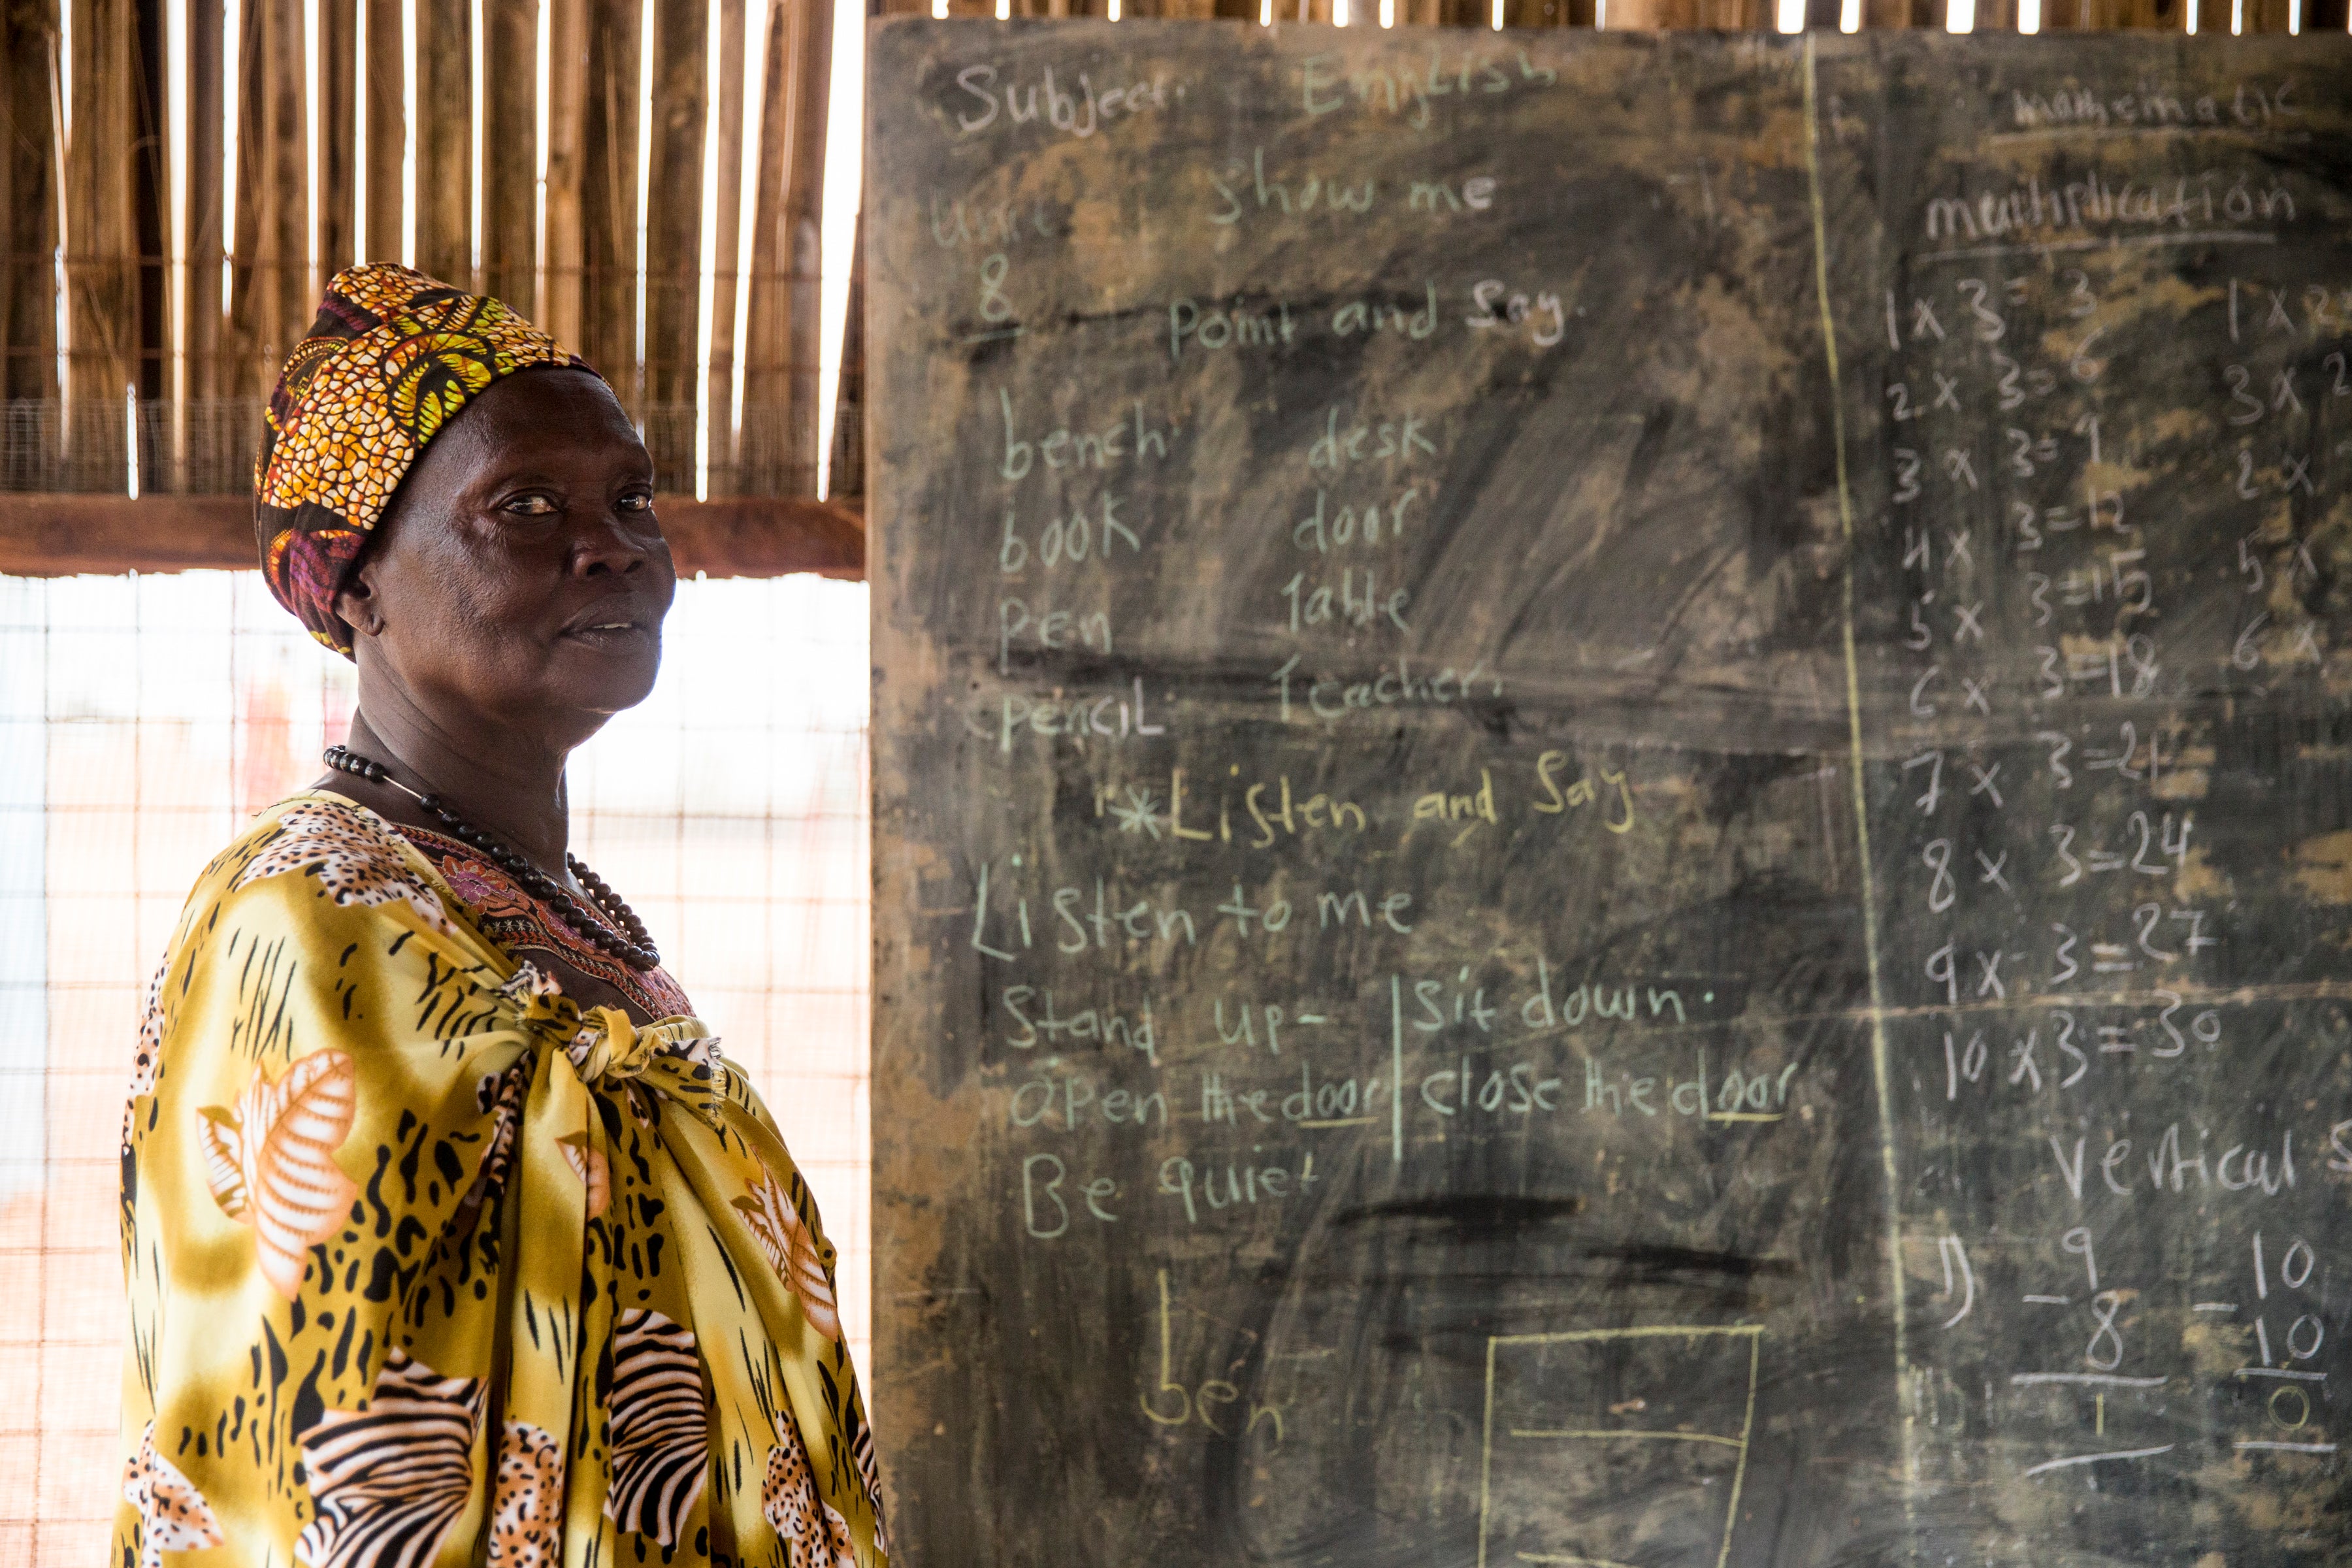 Subject: English
Unit show me
8
Point and Say.
bench desk
book door
pen Table
pencil Teacher.
*Listen and Say
Listen to me
Stand up- | Sit down.
Open the door | close the door
Be quiet
ben
mathematic
multiplication
1 x 3 = 3 1 x 2
2 x 3 = 6 3 x 2
3 x 3 = 9 2 x
4 x 3 = 12
5 x 3 = 15 5 x
6 x 3 = 18 6 x
7 x 3 = 21
8 x 3 = 24
9 x 3 = 27
10 x 3 = 30
Vertical S
1) 9 10
- 8 - 10
1 0